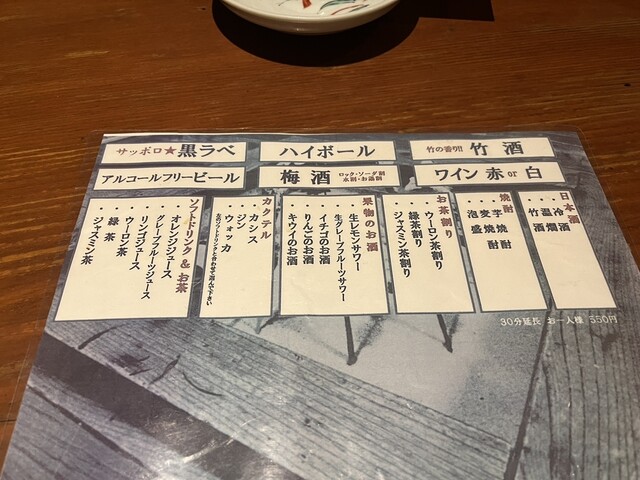 サッポロ★黒ラベ
ハイボール
竹の香り!! 竹酒
アルコールフリービール
梅酒 ロック・ソーダ割 水割・お湯割
ワイン 赤 or 白
日本酒
・冷酒
・温燗
・竹酒
焼酎
・芋焼酎
・麦焼酎
・泡盛
お茶割り
・ウーロン茶割り
・緑茶割り
・ジャスミン茶割り
果物のお酒
生レモンサワー
生グレープフルーツサワー
イチゴのお酒
りんごのお酒
キウイのお酒
カクテル
・カシス
・ジン
・ウォッカ
左のソフトドリンクと合わせて選んで下さい
ソフトドリンク&お茶
・オレンジジュース
・グレープフルーツジュース
・リンゴジュース
・ウーロン茶
・緑茶
・ジャスミン茶
30分延長 お一人様 550円